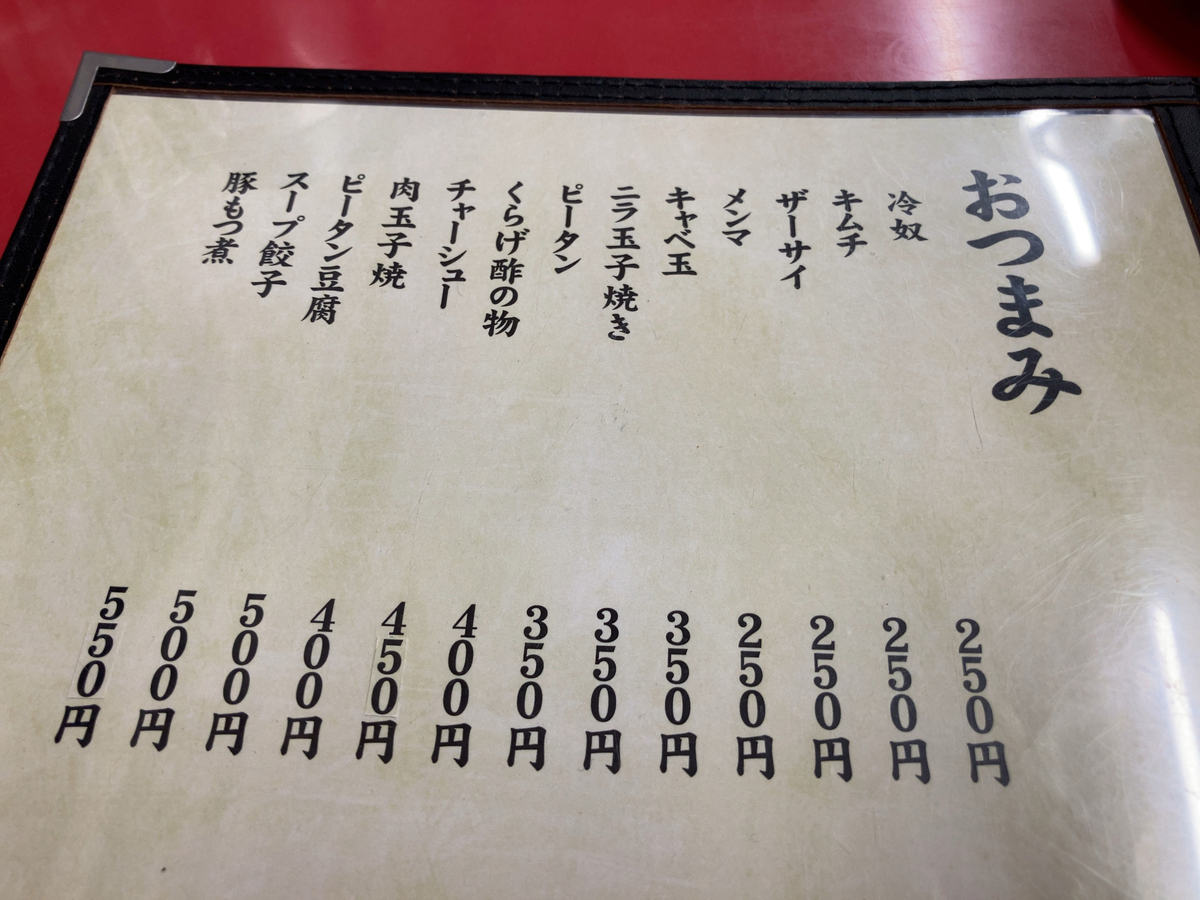 おつまみ
冷奴 250円
キムチ 250円
ザーサイ 250円
メンマ 250円
キャベ玉 350円
ニラ玉子焼き 350円
ピータン 350円
くらげ酢の物 400円
チャーシュー 450円
肉玉子焼 400円
ピータン豆腐 500円
スープ餃子 500円
豚もつ煮 550円